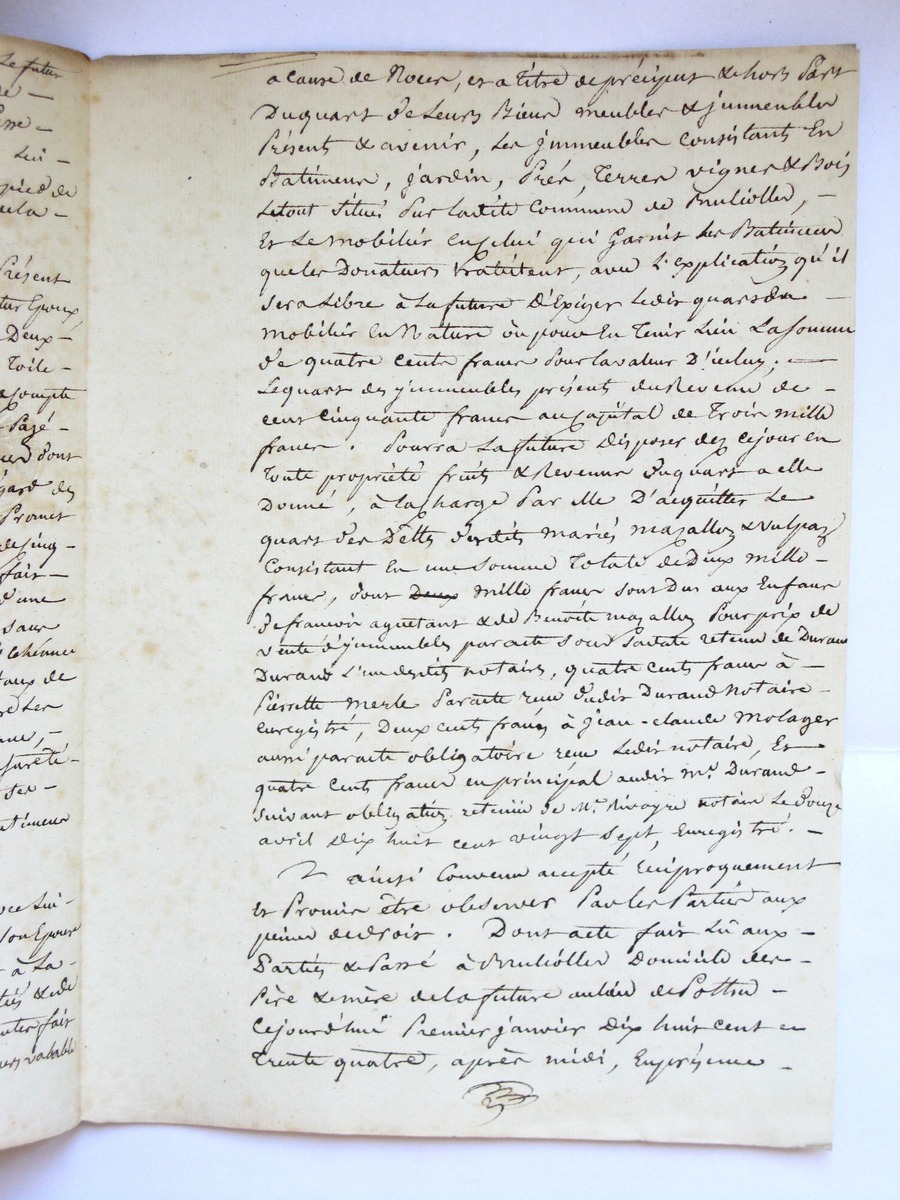 Le futur
de —
passe —
Lui —
pied de
de la —
Présent
tur Epoux,
Deux —
Toile —
compte
Payé —
dont
égard des
Promet
de cinq —
fait —
d'une
sans
échéance
taux de
Les
sureté —
des —
batimens
avec Lui —
son Epouse
à La —
& de
fait
valable
a cause de Noces, et a titre de préciput & hors Part
Du quart de Leurs Biens meubles & jmmeubles
Présents & avenir, Les jmmeubles consistants En
Batimens, jardin, Prés, Terres vignes & Bois
Le tout Situés Sur La dite Commune de Brulliolles, —
Et Le mobilier En celui qui Garnit Les Batimens
que Les Donateurs habitent, avec L'explication qu'il
sera Libre à La future D'Exiger Ledit quart du —
mobilier En Nature ou pour En Tenir Lieu La somme
de quatre Cents francs Pour La valeur D'icelui; —
Le quart des jmmeubles présents du Revenu de —
cent cinquante francs au Capital de Trois mille
francs. Pourra La future Disposer dez ce jour en
Toute propriété fruits & Revenus du quart a elle
Donné, à La charge Par elle D'acquitter Le
quart des Dettes desdits mariés mazallon & Vulpaz
Consistant En une somme Totale de Deux mille —
francs, dont Deux mille francs sont Dus aux Enfans
De françois aguetant & de Benoite mazallon Pour prix de
vente d'jmmeubles par acte sous Sadate retenu de Durand
Durand L'un desdits notaires, quatre cents francs à —
Pierrette Merle Par acte reçu dudit Durand Notaire —
Enregistré, Deux cents francs à jean-claude Molager
aussi par acte obligatoire reçu Ledit notaire, Et
quatre cents francs en principal audit Me. Durand —
suivant obligation retenue de Me. Rivoyre notaire Le Douze
avril Dix huit cent vingt Sept, Enregistré. —
ainsi Convenu accepté réciproquement
Et Promis être observer Par Les Parties aux
peines de droit. Dont acte fait Lû aux —
Parties & Passé à Brulliolles Domicile des —
Père & mère de La future au Lieu de Pottru —
Cejourd'hui Premier janvier Dix huit cent —
Trente quatre, après midi, En présence —